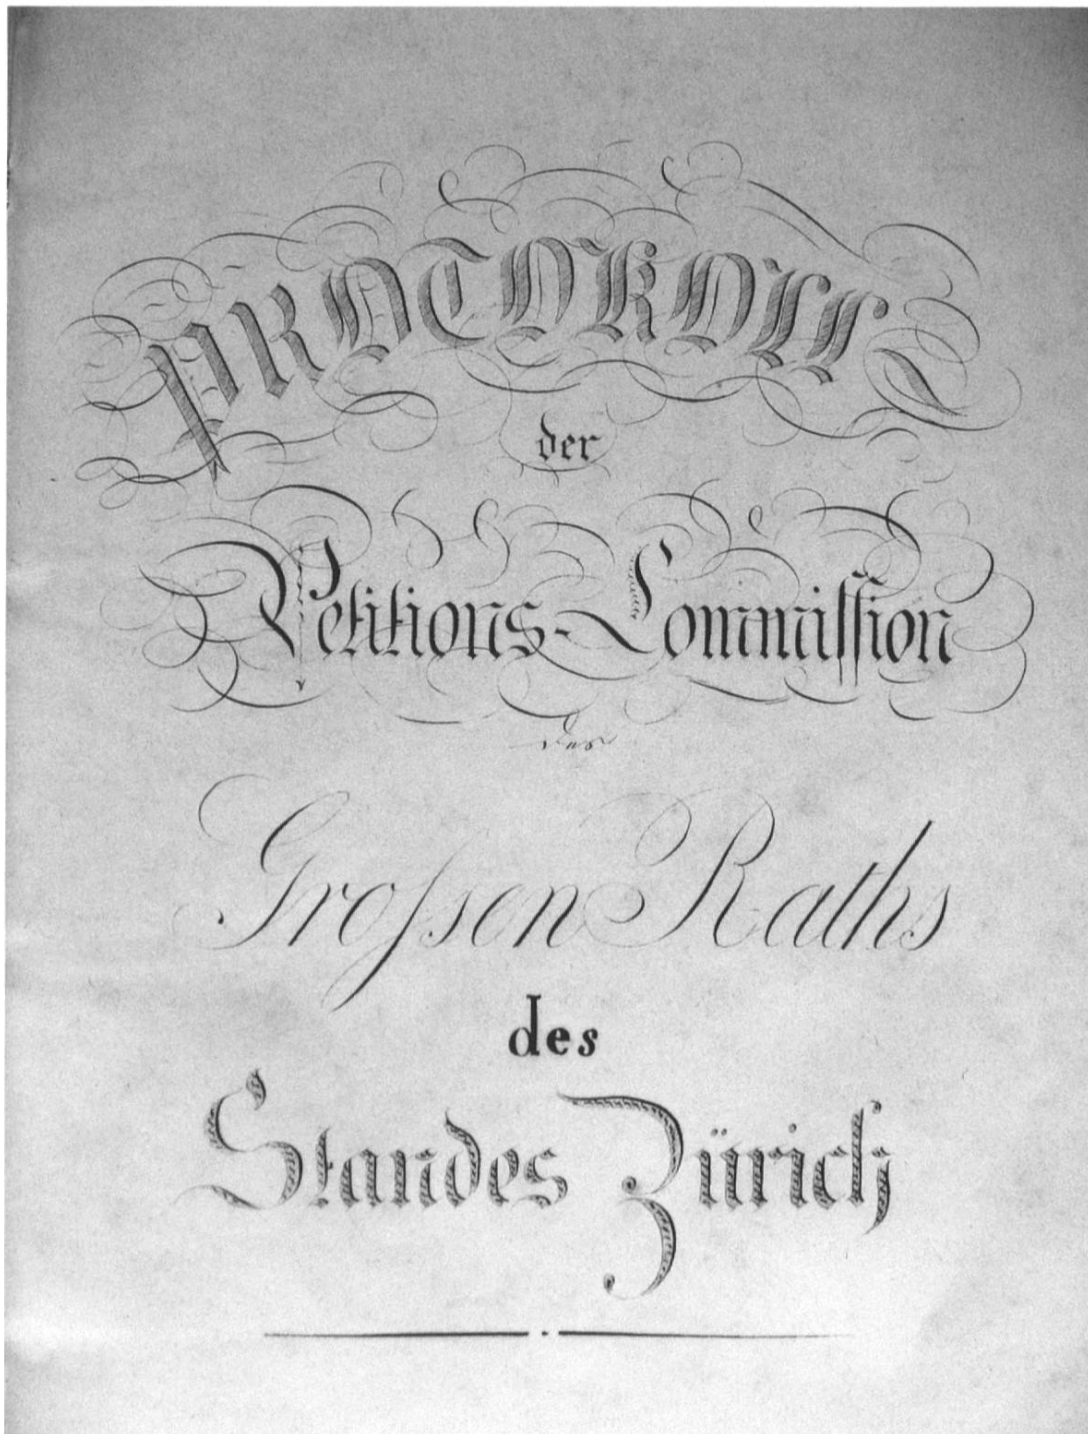 PROTOKOLL
der
Petitions-Commission
des
Großsen Raths
des
Standes Zürich